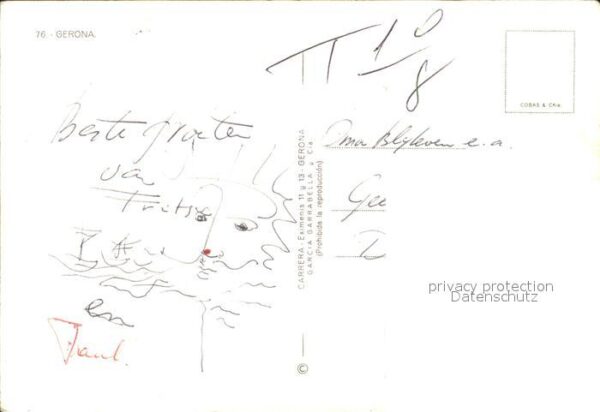 76 - GERONA
T 10/8
COBAS & Cia.
Beste groeten
van
Fritsje
en
Paul.
CARRERA. Eximenis 11 y 13 - GERONA
GARCIA GARRABELLA y Cía
(Prohibida la reproducción)
©
Oma Blijleven e.a.
privacy protection
Datenschutz